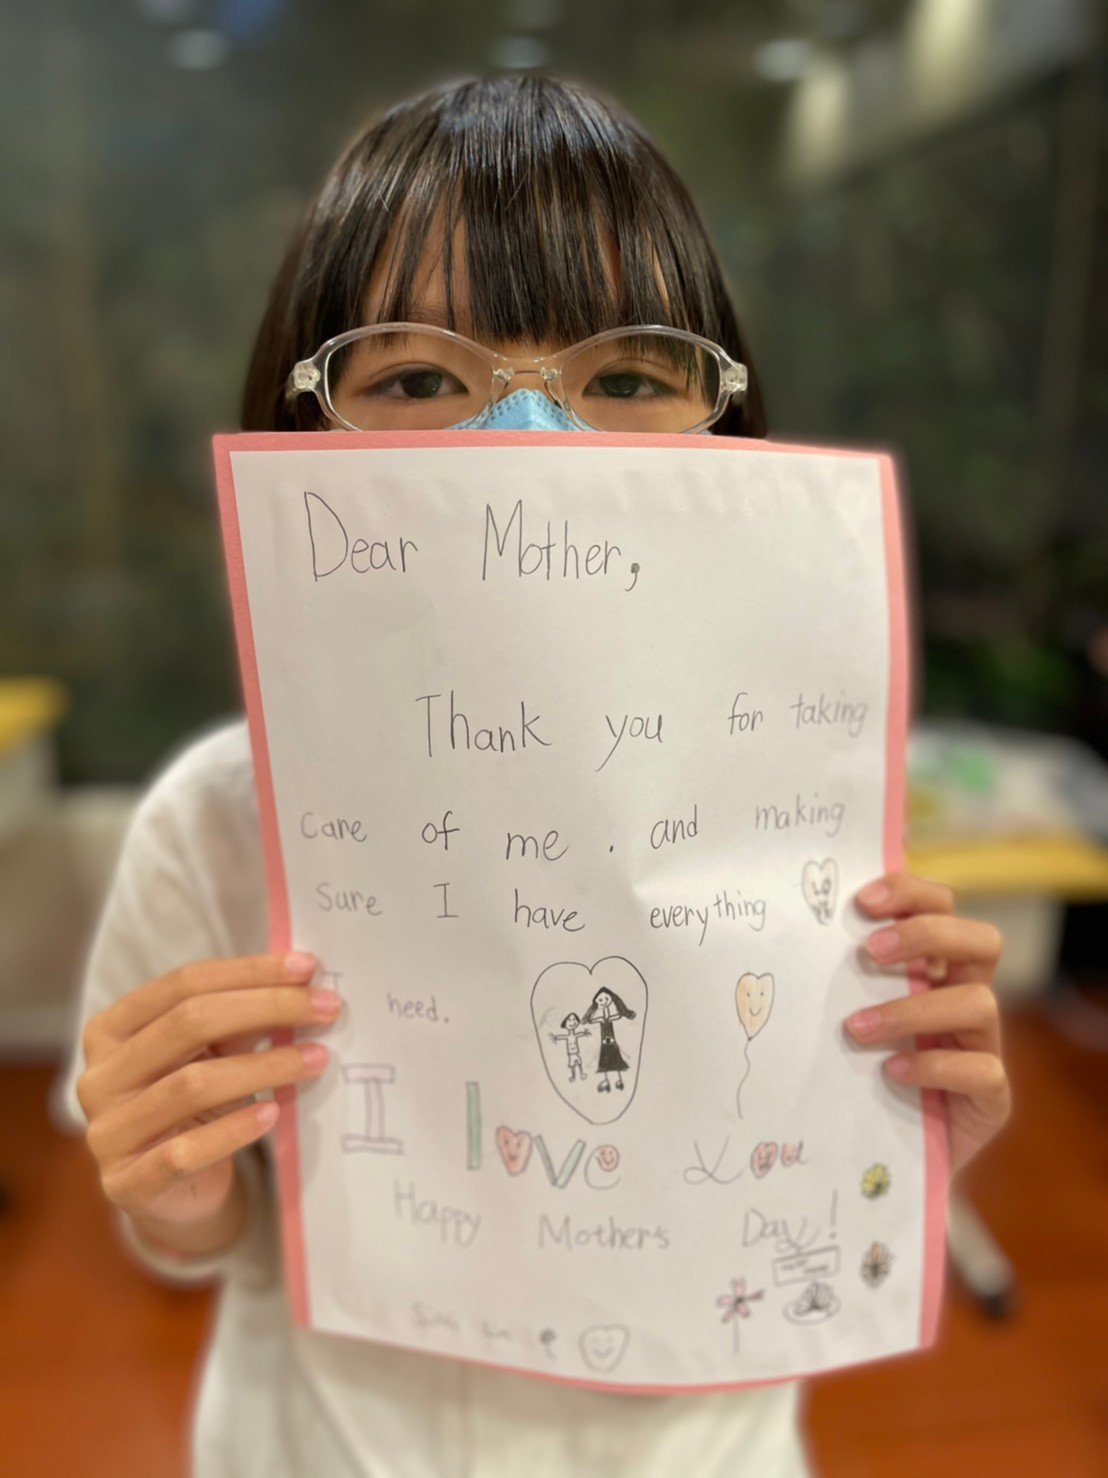 Dear Mother,
Thank you for taking
care of me. and making
Sure I have everything
LOVE
I need.
I love you
Happy Mother's Day!